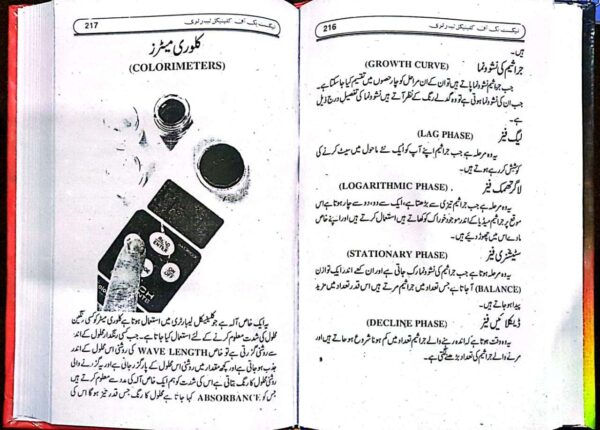 216
ٹیکسٹ بک آف کلینیکل لیبارٹری
ہیں۔
جراثیم کی نشوونما (GROWTH CURVE)
جب جراثیم نشوونما پاتے ہیں تو ان کے ان مراحل کو چار حصوں میں تقسیم کیا جا سکتا ہے۔
جب ان کی نشوونما ہوتی ہے تو وہ گدلے رنگ کے نظر آتے ہیں نشوونما کی تفصیل درج ذیل
ہے۔
لیگ فیز (LAG PHASE)
یہ وہ مرحلہ ہے جب جراثیم اپنے آپ کو ایک نئے ماحول میں سیٹ کرنے کی
کوشش کر رہے ہوتے ہیں۔
لاگرتھمک فیز (LOGARITHMIC PHASE)
یہ وہ مرحلہ ہے جب جراثیم تیزی سے بڑھتا ہے، ایک سے دو، دو سے چار ہوتا ہے اس
موقع پر جراثیم میڈیا کے اندر موجود خوراک کو کھاتے ہیں استعمال کرتے ہیں اور اپنے خاص
مادے اس میں چھوڑ دیتے ہیں۔
سٹیشنری فیز (STATIONARY PHASE)
یہ وہ مرحلہ ہوتا ہے جب جراثیم کی نشوونما رک جاتی ہے اور ان کے اندر ایک توازن
(BALANCE) آ جاتا ہے جس تعداد میں جراثیم مرتے ہیں اس قدر تعداد میں مزید
پیدا ہو جاتے ہیں۔
ڈیکلائین فیز (DECLINE PHASE)
یہ وہ وقت ہوتا ہے کہ زندہ رہنے والے جراثیم تعداد میں کم ہونا شروع ہو جاتے ہیں اور
مرنے والے جراثیم کی تعداد بڑھنے لگتی ہے۔
217
ٹیکسٹ بک آف کلینیکل لیبارٹری
کلوری میٹرز
(COLORIMETERS)
یہ ایک خاص آلہ ہے جو کلینیکل لیبارٹری میں استعمال ہوتا ہے کلوری میٹر کو کسی رنگین
محلول کی شدت معلوم کرنے کے لئے استعمال کیا جاتا ہے۔ جب کسی رنگدار محلول کے اندر
سے روشنی گزرتی ہے تو خاص WAVE LENGTH کی روشنی اس محلول کے اندر
جذب ہو جاتی ہے اور کچھ مقدار میں روشنی اس محلول کے پار گزر جاتی ہے اور یہ گزرنے والی
روشنی محلول کا رنگ بتاتی ہے اس کی شدت کو ہم ایک خاص آلہ کی مدد سے معلوم کرتے ہیں
جس کو ABSORBANCE کہا جاتا ہے محلول کا رنگ جس قدر تیز ہو گا اس کی